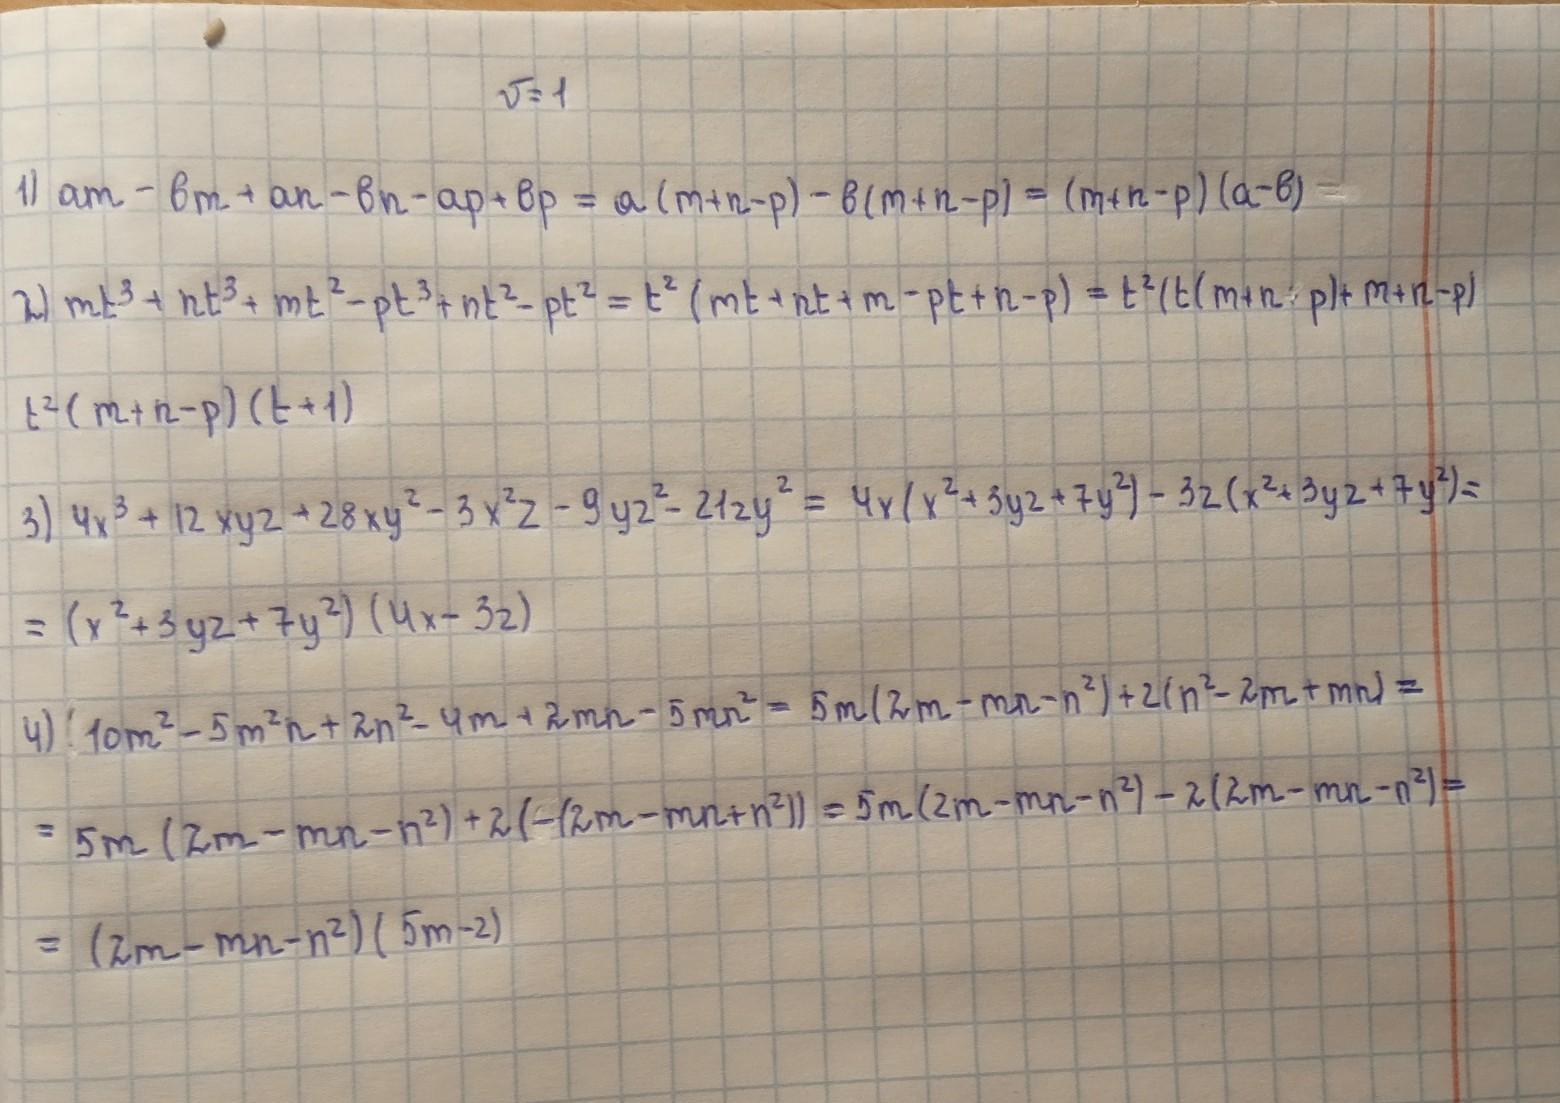 v=1
1) am - bm + an - bn - ap + bp = a (m+n-p) - b(m+n-p) = (m+n-p) (a-b) =
2) mt³ + nt³ + mt² - pt³ + nt² - pt² = t² (mt + nt + m - pt + n - p) = t² (t(m+n-p)+ m+n-p)
t² (m+n-p) (t+1)
3) 4x³ + 12xyz + 28xy² - 3x²z - 9yz² - 21zy² = 4x(x²+3yz+7y²) - 3z(x²+3yz+7y²)=
= (x²+3yz+7y²) (4x-3z)
4) 10m² - 5m²n + 2n² - 4m + 2mn - 5mn² = 5m(2m - mn - n²) + 2(n² - 2m + mn) =
= 5m (2m - mn - n²) + 2(-(2m - mn + n²)) = 5m(2m - mn - n²) - 2(2m - mn - n²) =
= (2m - mn - n²) (5m-2)